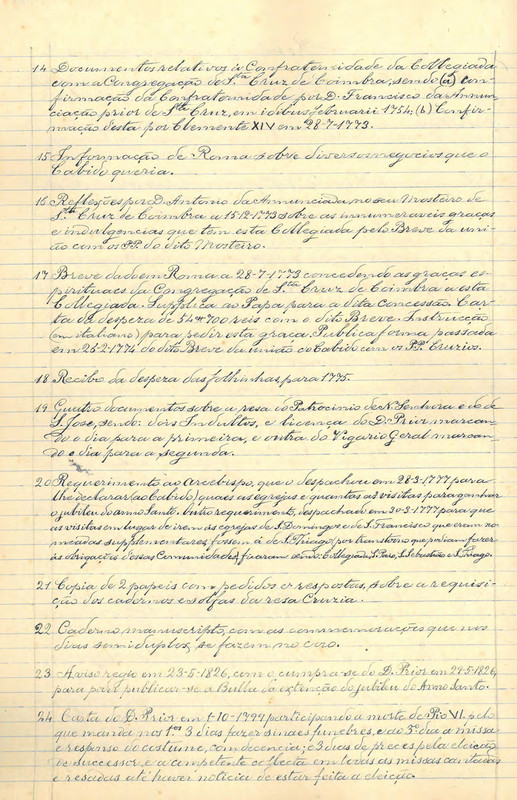 14 Documentos relativos á Confraternidade da Collegiada
com a Congregação de S.ta Cruz de Coimbra, sendo (a) con-
firmação da Confraternidade por D. Francisco da Annun-
ciação prior de S.ta Cruz, em idibus februarii 1754, (b) Confir-
mação desta por Clemente XIV em 28-7-1773.
15 Informação de Roma sobre diversos negocios que o
Cabido queria.
16 Reflexões por D. Antonio da Annunciada no seu Mosteiro de
S.ta Cruz de Coimbra a 15-12-1773 sobre as innumeraveis graças
e indulgencias que tem esta Collegiada pelo Breve da uni-
ão com os PP. do dito Mosteiro.
17 Breve dado em Roma a 28-7-1773 concedendo as graças es-
pirituaes da Congregação de S.ta Cruz de Coimbra a esta
Collegiada. Supplica ao Papa para a dita concessão. Car-
ta da despeza de 54#700 reis com o dito Breve. Instrucção
(em italiano) para pedir esta graça. Publica forma passada
em 25-2-1774 do dito Breve da união do Cabido com os PP. Cruzios.
18 Recibo da despeza das folhinhas, para 1775.
19 Quatro documentos sobre a resa do Patrocinio de N. Senhora e do de
S. José, sendo: dois Indultos, e licença do D. Prior marcan-
do o dia para a primeira, e outra do Vigario Geral marcan-
do o dia para a segunda.
20 Requerimento ao Arcebispo, que o despachou em 28-3-1777 para
lhe declarar (ao Cabido) quaes as egrejas e quantas as visitas para ganhar
o jubileu do anno Santo. Outro requerimento, despachado em 30-3-1777 para que
as visitas em lugar de irem ás egrejas de S. Domingos e de S. Francisco que eram no-
meadas supplementares fossem á de S. Thiago, por transtorno que podiam fazer
ás obrigações dessas Communidades, ficaram sendo: Collegiada, S. Paio, S. Sebastião e S. Thiago.
21 Copia de 2 papeis com pedidos e respostas, sobre a requisi-
ção dos cadernos e solfas da resa Cruzia.
22 Caderno manuscripto, com as commemorações que nos
dias semiduplos, se fazem no coro.
23 Aviso regio em 23-5-1826, com o cumpra-se do D. Prior em 29-5-1826,
para publicar-se a Bulla da extenção do jubileu do Anno Santo.
24 Carta do D. Prior em 1-10-1799 participando a morte de Pio VI, pelo
que manda nos 1.os 3 dias fazer sinaes funebres, e ao 3.º dia a missa
e responso do costume, com decencia; e 3 dias de preces pela eleição
de successor, e a competente collecta em todas as missas cantadas
e resadas até haver noticia de estar feita a eleição.